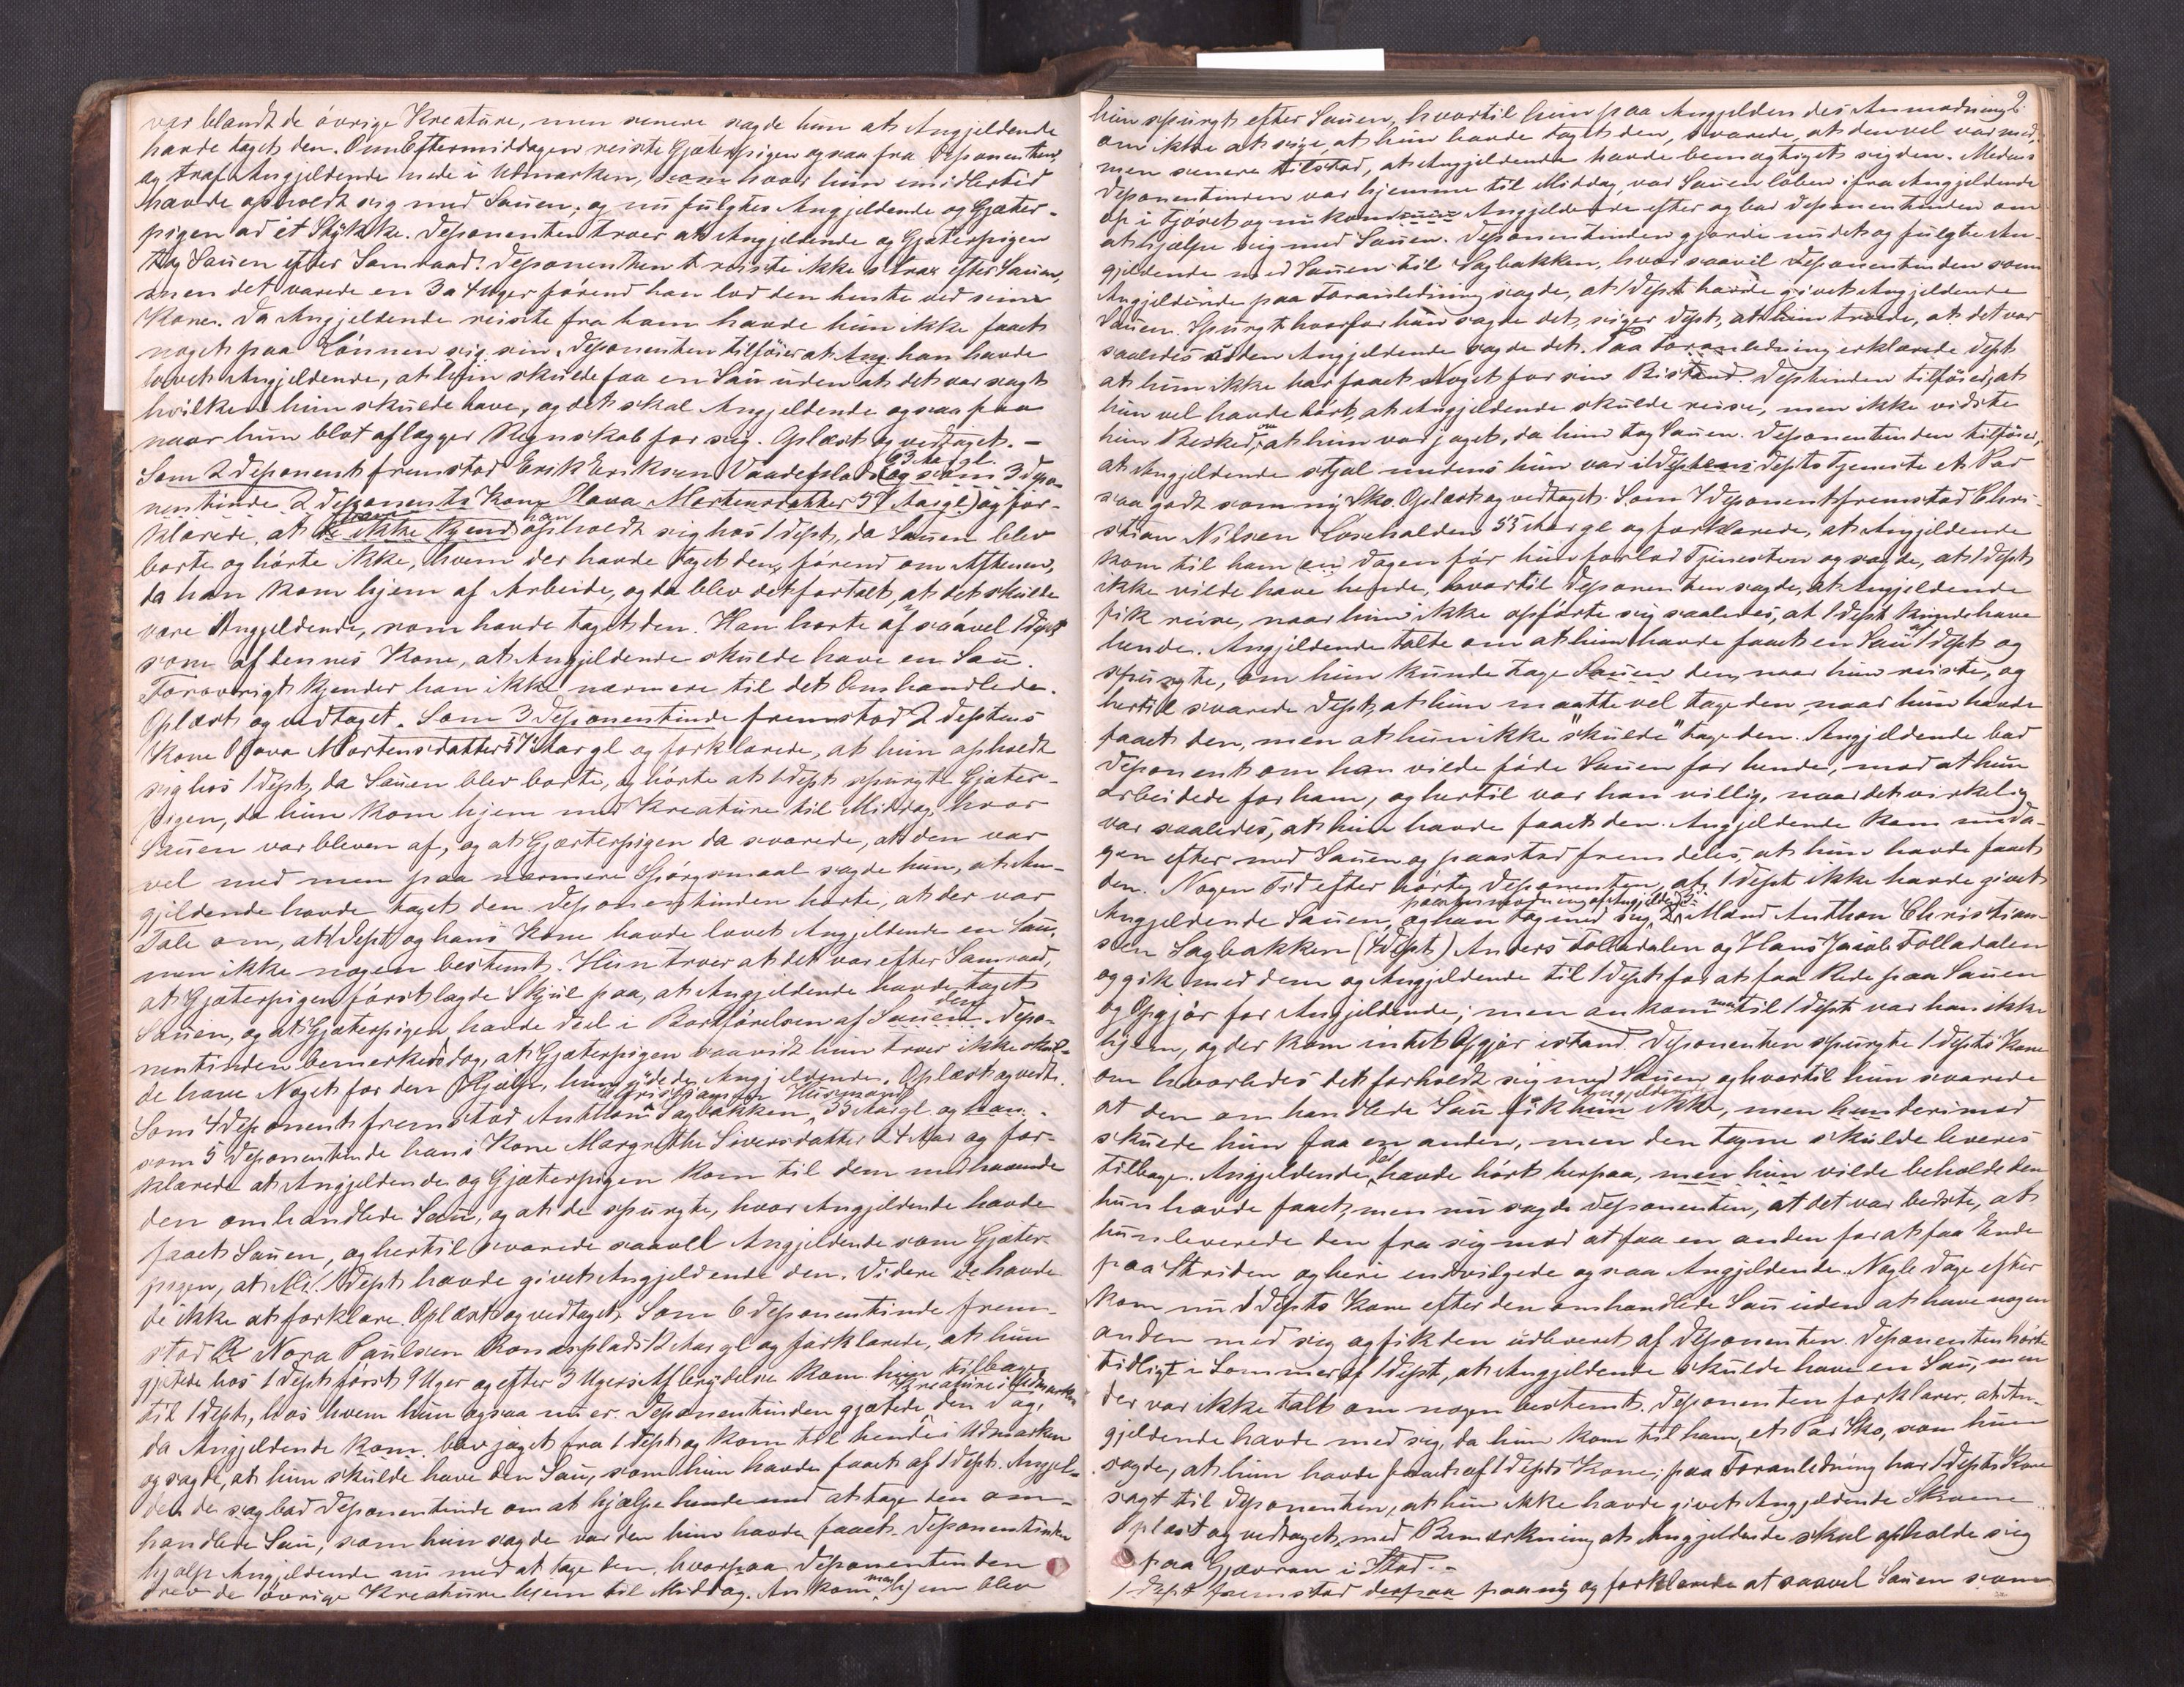 var blandt de övrige Kreature, men senere sagde hun at Angjeldende
havde taget den. Om Eftermiddagen reiste Gjæterpigen ogsaa fra Deponenten,
og traf Angjeldende nede i Udmarken, hvor hun imidlertid
havde opholdt sig med Sauen, og nu fulgtes Angjeldende og Gjæter-
pigen ad et Stykke. Deponenten troer at Angjeldende og Gjæterpigen
tog Sauen efter Samraad. Deponenten reiste ikke strax efter Sauen,
men det varede en 3 a 4 Uger förend han lod den hente ved sin
Kone. Da Angjeldende reiste fra ham havde hun ikke faaet
noget paa Lönnen sin. Deponenten tilföier at han havde
lovet Angjeldende, at hun skulde faa en Sau uden at det var sagt
hvilken hun skulde have, og det skal Angjeldende ogsaa faa
naar hun blot aflægger Regnskab for sig. Oplæst og vedtaget. -
Som 2 Deponent fremstod Erik Eriksen Vaadeslad 63 Aar gl. (og som 3 Depo-
nentinde 2 Deponents Kone Olava Mortensdatter 57 Aar gl.) og for-
klarede, at han opholdt sig hos 1 Dept, da Sauen blev
borte og hörte ikke, hvem der havde taget den, förend om Aftenen,
da han kom hjem af Arbeide, og da blev det fortalt, at det skulde
være Angjeldende, som havde taget den. Han hörte af saavel 1 Dept
som af dennes Kone, at Angjeldende skulde have en Sau.
Foravrigt kjender han ikke nærmere til det Omhandlede.
Oplæst og vedtaget. Som 3 Deponentinde fremstod 2 Deptens
Kone Olava Mortensdatter 57 Aar gl og forklarede, at hun opholdt
sig hos 1 Dept, da Sauen blev borte, og hörte at 1 Dept spurgte Gjæter-
pigen, da hun kom hjem med Kreature til Middag, hvor
Sauen var bleven af, og at Gjæterpigen da svarede, at den var
vel med men paa nærmere Spörgsmaal sagde hun, at An-
gjeldende havde taget den. Deponentinden hörte, at der var
Tale om, at 1 Dept og hans Kone havde lovet Angjeldende en Sau,
men ikke nogen bestemt. Hun troer at det var efter Samraad,
at Gjæterpigen först lagde Skjul paa, at Angjeldende havde taget
Sauen, og at Gjæterpigen havde Deel i Bortförelsen af den. Depo-
nentinden bemerker dog, at Gjæterpigen saavidt hun troer ikke skul-
de have Noget for den Hjælp, hun ydede Angjeldende. Oplæst og vedt.
Som 4 Deponent fremstod Anthon Christiansen Sagbakken, Husmand 33 Aar gl og
som 5 Deponentinde hans Kone Margrethe Siversdatter 24 Aar og for-
klarede at Angjeldende og Gjæterpigen kom til dem medhavende
den omhandlede Sau, og at de spurgte, hvor Angjeldende havde
faaet Sauen, og hertil svarede saavel Angjeldende som Gjæter-
pigen, at 1 Dept havde givet Angjeldende den. Videre havde
de ikke at forklare. Oplæst og vedtaget. Som 6 Deponentinde frem-
stod Nora Paulsen Ronesplads 12 Aar gl og forklarede, at hun
gjætede hos 1 Dept först 9 Uger og efter 3 Ugers Afbrydelse kom hun tilbage
til 1 Dept, hos hvem hun ogsaa nu er. Deponentinden gjætede Kreature i Udmarken den Dag,
da Angjeldende blev jaget fra 1 Dept og kom til hende i Udmarken
og sagde, at hun skulde have den Sau, som hun havde faaet af 1 Dept. Angjel-
dende bad Deponentinde om at hjælpe hende med at tage den om-
handlede Sau, som hun sagde var den hun havde faaet. Deponentinden
hjalp Angjeldende nu med at tage den, hvorpaa Deponentinden
drev de övrige Kreature hjem til Middag. Ankommen hjem blev
2
hun spurgt efter Sauen, hvortil hun paa Angjeldendes Anmodning
om ikke at sige, at hun havde taget den, svarede, at den vel var med,
men senere tilstod, at Angjeldende havde bemægtiget sig den. Medens
Deponentinden var hjemme til Middag, var Sauen löben ifra Angjeldende
op i Fjöset og nu kom Angjeldende efter og bad Deponentinden om
at hjælpe sig med Sauen. Deponentinden gjorde nu det og fulgte An-
gjeldende med Sauen til Sagbakken, hvor saavel Deponentinden som
Angjeldende paa Foranledning sagde, at 1 Dept havde givet Angjeldende
Sauen. Spurgt hvorfor hun sagde det, siger Dept, at hun troede, at det var
saaledes siden Angjeldende sagde det. Paa Foranledning erklærede Dept
at hun ikke har faaet Noget for sin Bistand. Deptinden tilföied, at
hun vel havde hört, at Angjeldende skulde reise, men ikke vidste
hun Besked om, at hun var jaget, da hun tog Sauen. Deponentinden tilföied,
at Angjeldende stjal medens hun var i 1 Depts Tjeneste et Par
saa godt som ny Sko. Oplæst og vedtaget. Som 7 Deponent fremstod Chri-
stian Nilsen Lövsehalden 55 Aar gl og forklarede, at Angjeldende
kom til ham en Dagen för hun forlod Tjenesten og sagde, at 1 Dept
ikke vilde have hende, hvortil Deponenten sagde, at Angjeldende
fik reise, naar hun ikke opförte sig saaledes, at 1 Dept kunde have
hende. Angjeldende talte om at hun havde faaet en Sau af 1 Dept og
spurgte, om hun kunde tage den, naar hun reiste, og
hertil svarede Dept, at hun maatte vel tage den, naar hun havde
faaet den, men at hun ikke "skulde" tage den. Angjeldende bad
Deponent om han vilde föde Sauen for hende, mod at hun
arbeidede for ham, og hertil var han villig, naar det virkelig
var saaledes, at hun havde faaet den. Angjeldende kom nu Da-
gen efter med Sauen og paastod fremdeles, at hun havde faaet
den. Nogen Tid efter hörte Deponenten, at 1 Dept ikke havde givet
Angjeldende Sauen, og han tog paa Anmodning af Angjeldende med sig 2 Mænd Anthon Christian-
sen Sagbakken (4 Dept) Anders Folladalen og Hans Jacob Folladalen
og gik med dem og Angjeldende til 1 Dept for at faa Rede paa Sauen
og Opgjör for Angjeldende; men ankommen til 1 Dept var han ikke
hjem, og der kom intet Opgjör istand. Deponenten spurgte 1 Depts Kone
om hvorledes det forholdt sig med Sauen og hvortil hun svarede
at den omhandlede Sau fik Angjeldende ikke, men derimod
skulde hun faa en anden, men den tagne skulde leveres
tilbage. Angjeldende havde hört herpaa, men hun vilde beholde den
hun havde faaet, men nu sagde Deponenten, at det var bedste, at
hun leverede den fra sig mod at faa en anden for at faa Ende
paa Striden og heri indvilgede ogsaa Angjeldende. Nogle Dage efter
kom nu 1 Depts Kone efter den omhandlede Sau uden at have nogen
anden med sig og fik den udleveret af Deponenten. Deponenten hörte
tidligt i Sommer af 1 Dept, at Angjeldende skulde have en Sau, men
der var ikke talt om nogen bestemt. Deponenten forklarer, at An-
gjeldende havde med sig, da hun kom til ham, et Par Sko, som hun
sagde, at hun havde faaet af 1 Depts Kone; paa Foranledning har 1 Depts Kone
sagt til Deponenten, at hun ikke havde givet Angjeldende Skoene.
Oplæst og vedtaget, med Bemærkning at Angjeldende skal opholde sig
paa Gjævran i Stod. -
1 Dept fremstod derpaa paany og forklarede at saavel Sauen som